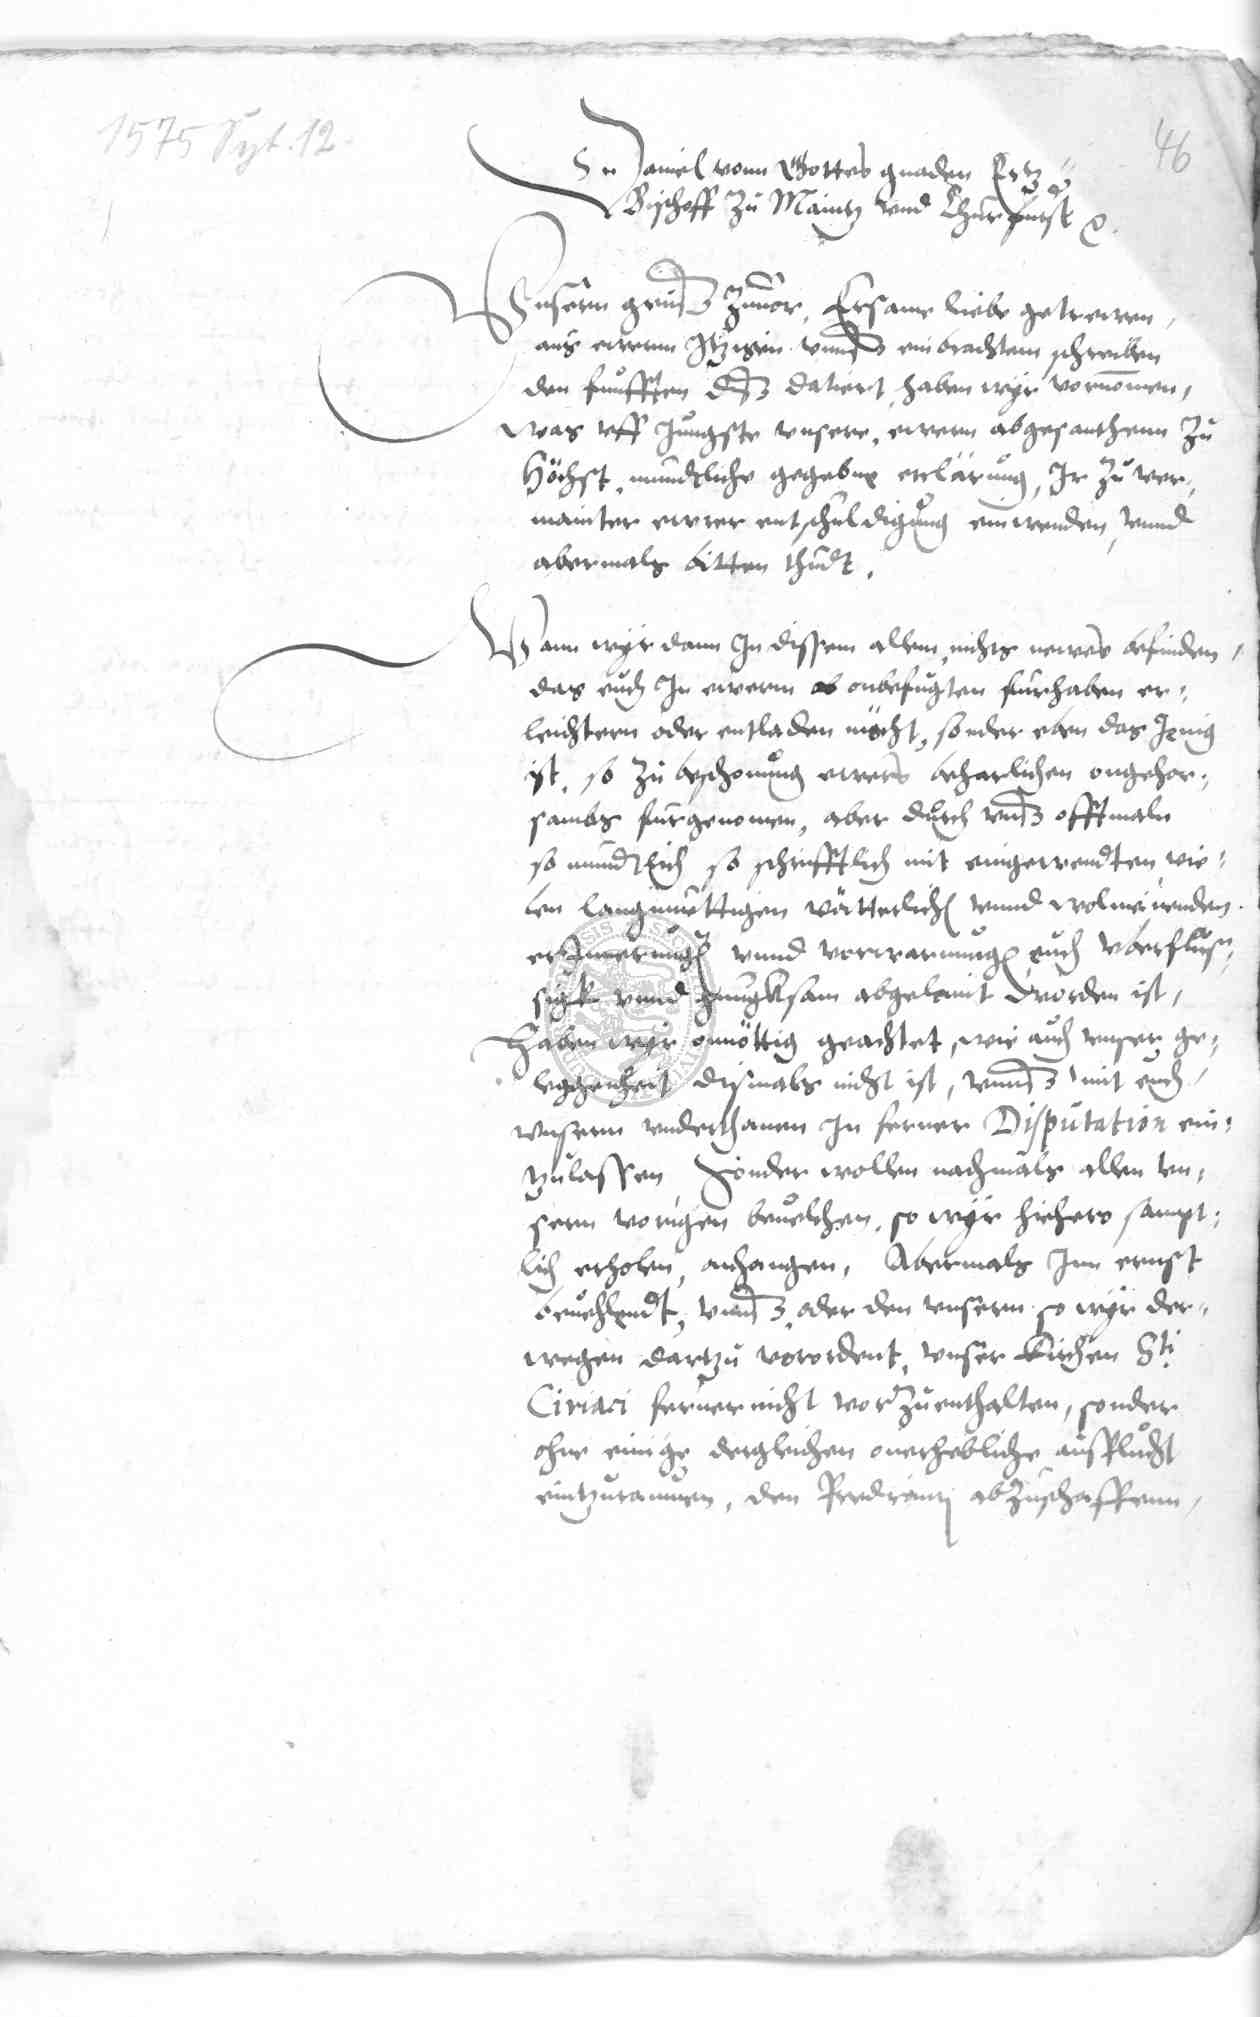 1575 Spt. 12.
46
Daniel vonn Gottes gnaden Ertz¬
Bischoff zu Maintz vnd Churfurst ꝛc.
Vnsern grus zuuor, Ersame liebe getrewen,
aus ewerm Itzigen vnns einbrachtem schreiben
den funfften dis datiert, haben wyr vernomen,
was vff Jungste vnsere, ewern abgesanthenn zu
Höchst, mundtliche gegebne erclärung, Ir zu ver¬
mainter ewrer entschuldigung einwenden, vnnd
abermals bitten thudt.
Wann wyr dann In dissem allem nichts newes befinden,
das euch In ewerm onbefugten furhaben er¬
leichtern oder entladen möcht, sonder eben das Jenig
ist, so zu beschonung ewers beharlichen ongehor¬
sambs furgenomen, aber durch vnns offtmaln
so mundtlich so schrifftlich mit eingewendten vie¬
len langmuttigen vätterlichen vnnd wolmeinenden
erInnerungen vnnd verwarnungen euch vberflus¬
sigk vnnd gnugksam abgelaint worden ist,
Haben wyr onnöttig geachtet, wie auch vnser ge¬
legenheit dismals nicht ist, vnns mit euch
vnsern vnderthanen In ferner Disputation ein¬
zulassen, Sonder wollen nachmals allen vn¬
sern vorigen beuelchen, so wyr hiehero sampt¬
lich erholen, anhangen, Abermals Inn ernst
beuehlendt, vnns oder den vnsern so wyr der¬
wegen dartzu verordent, vnser Kirchen Sti
Ciriaci ferner nicht vorzuenthalten, sonder
ohne einige dergleichen onerhebliche ausflucht
eintzuraumen, den Predicantj abzuschaffenn,